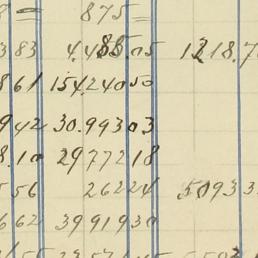 8 = 875 =
383 4.485.05 1218.7
861 154.240 50
942 30.993 03
8.10 29772 18
56 262 24 5093 3
662 39919 30